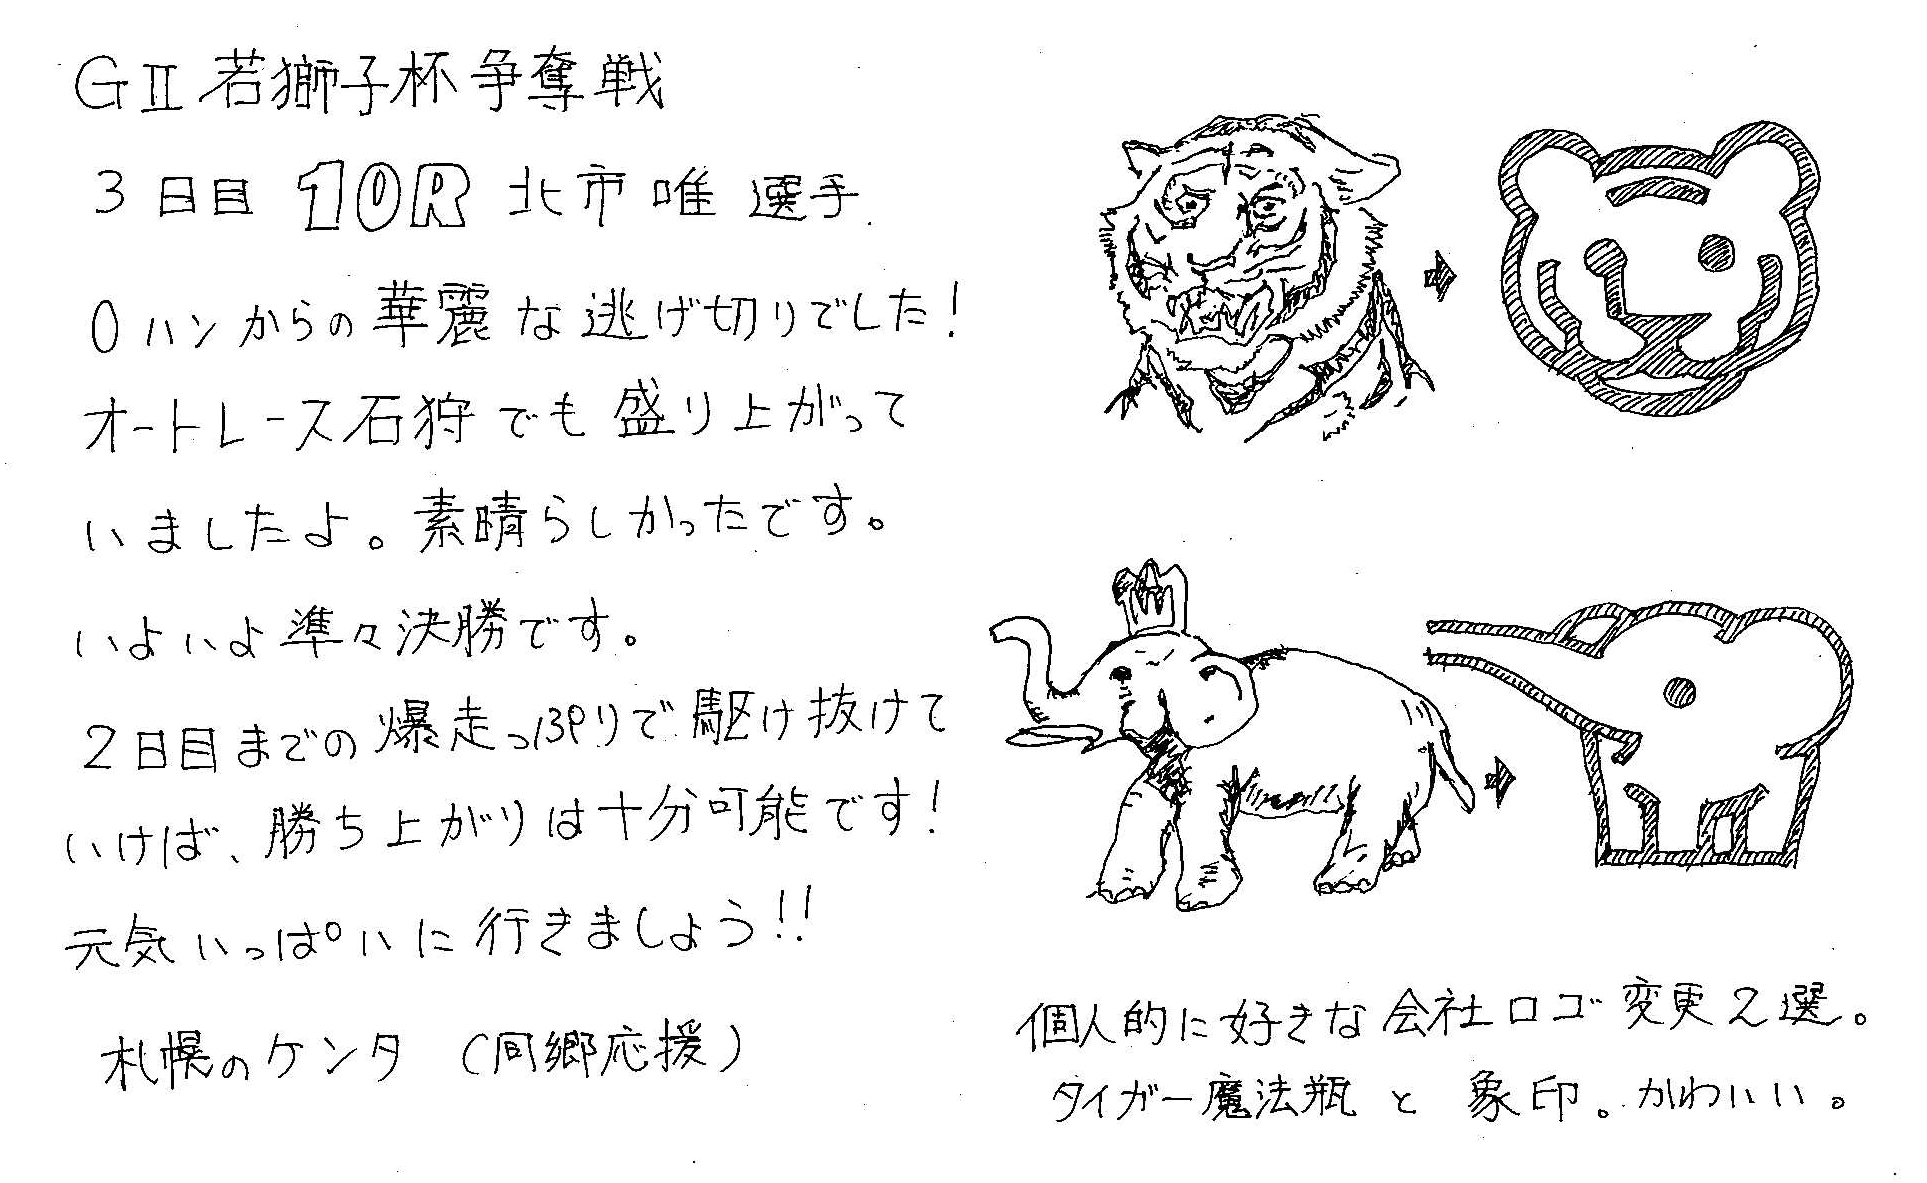 GⅡ若獅子杯争奪戦
3日目 10R 北市唯選手
0ハンからの華麗な逃げ切りでした!
オートレース石狩でも盛り上がって
いましたよ。素晴らしかったです。
いよいよ準々決勝です。
2日目までの爆走っぷりで駆け抜けて
いけば、勝ち上がりは十分可能です!
元気いっぱいに行きましょう!!
札幌のケンタ (同郷応援)
個人的に好きな会社ロゴ変更2選。
タイガー魔法瓶と象印。かわいい。